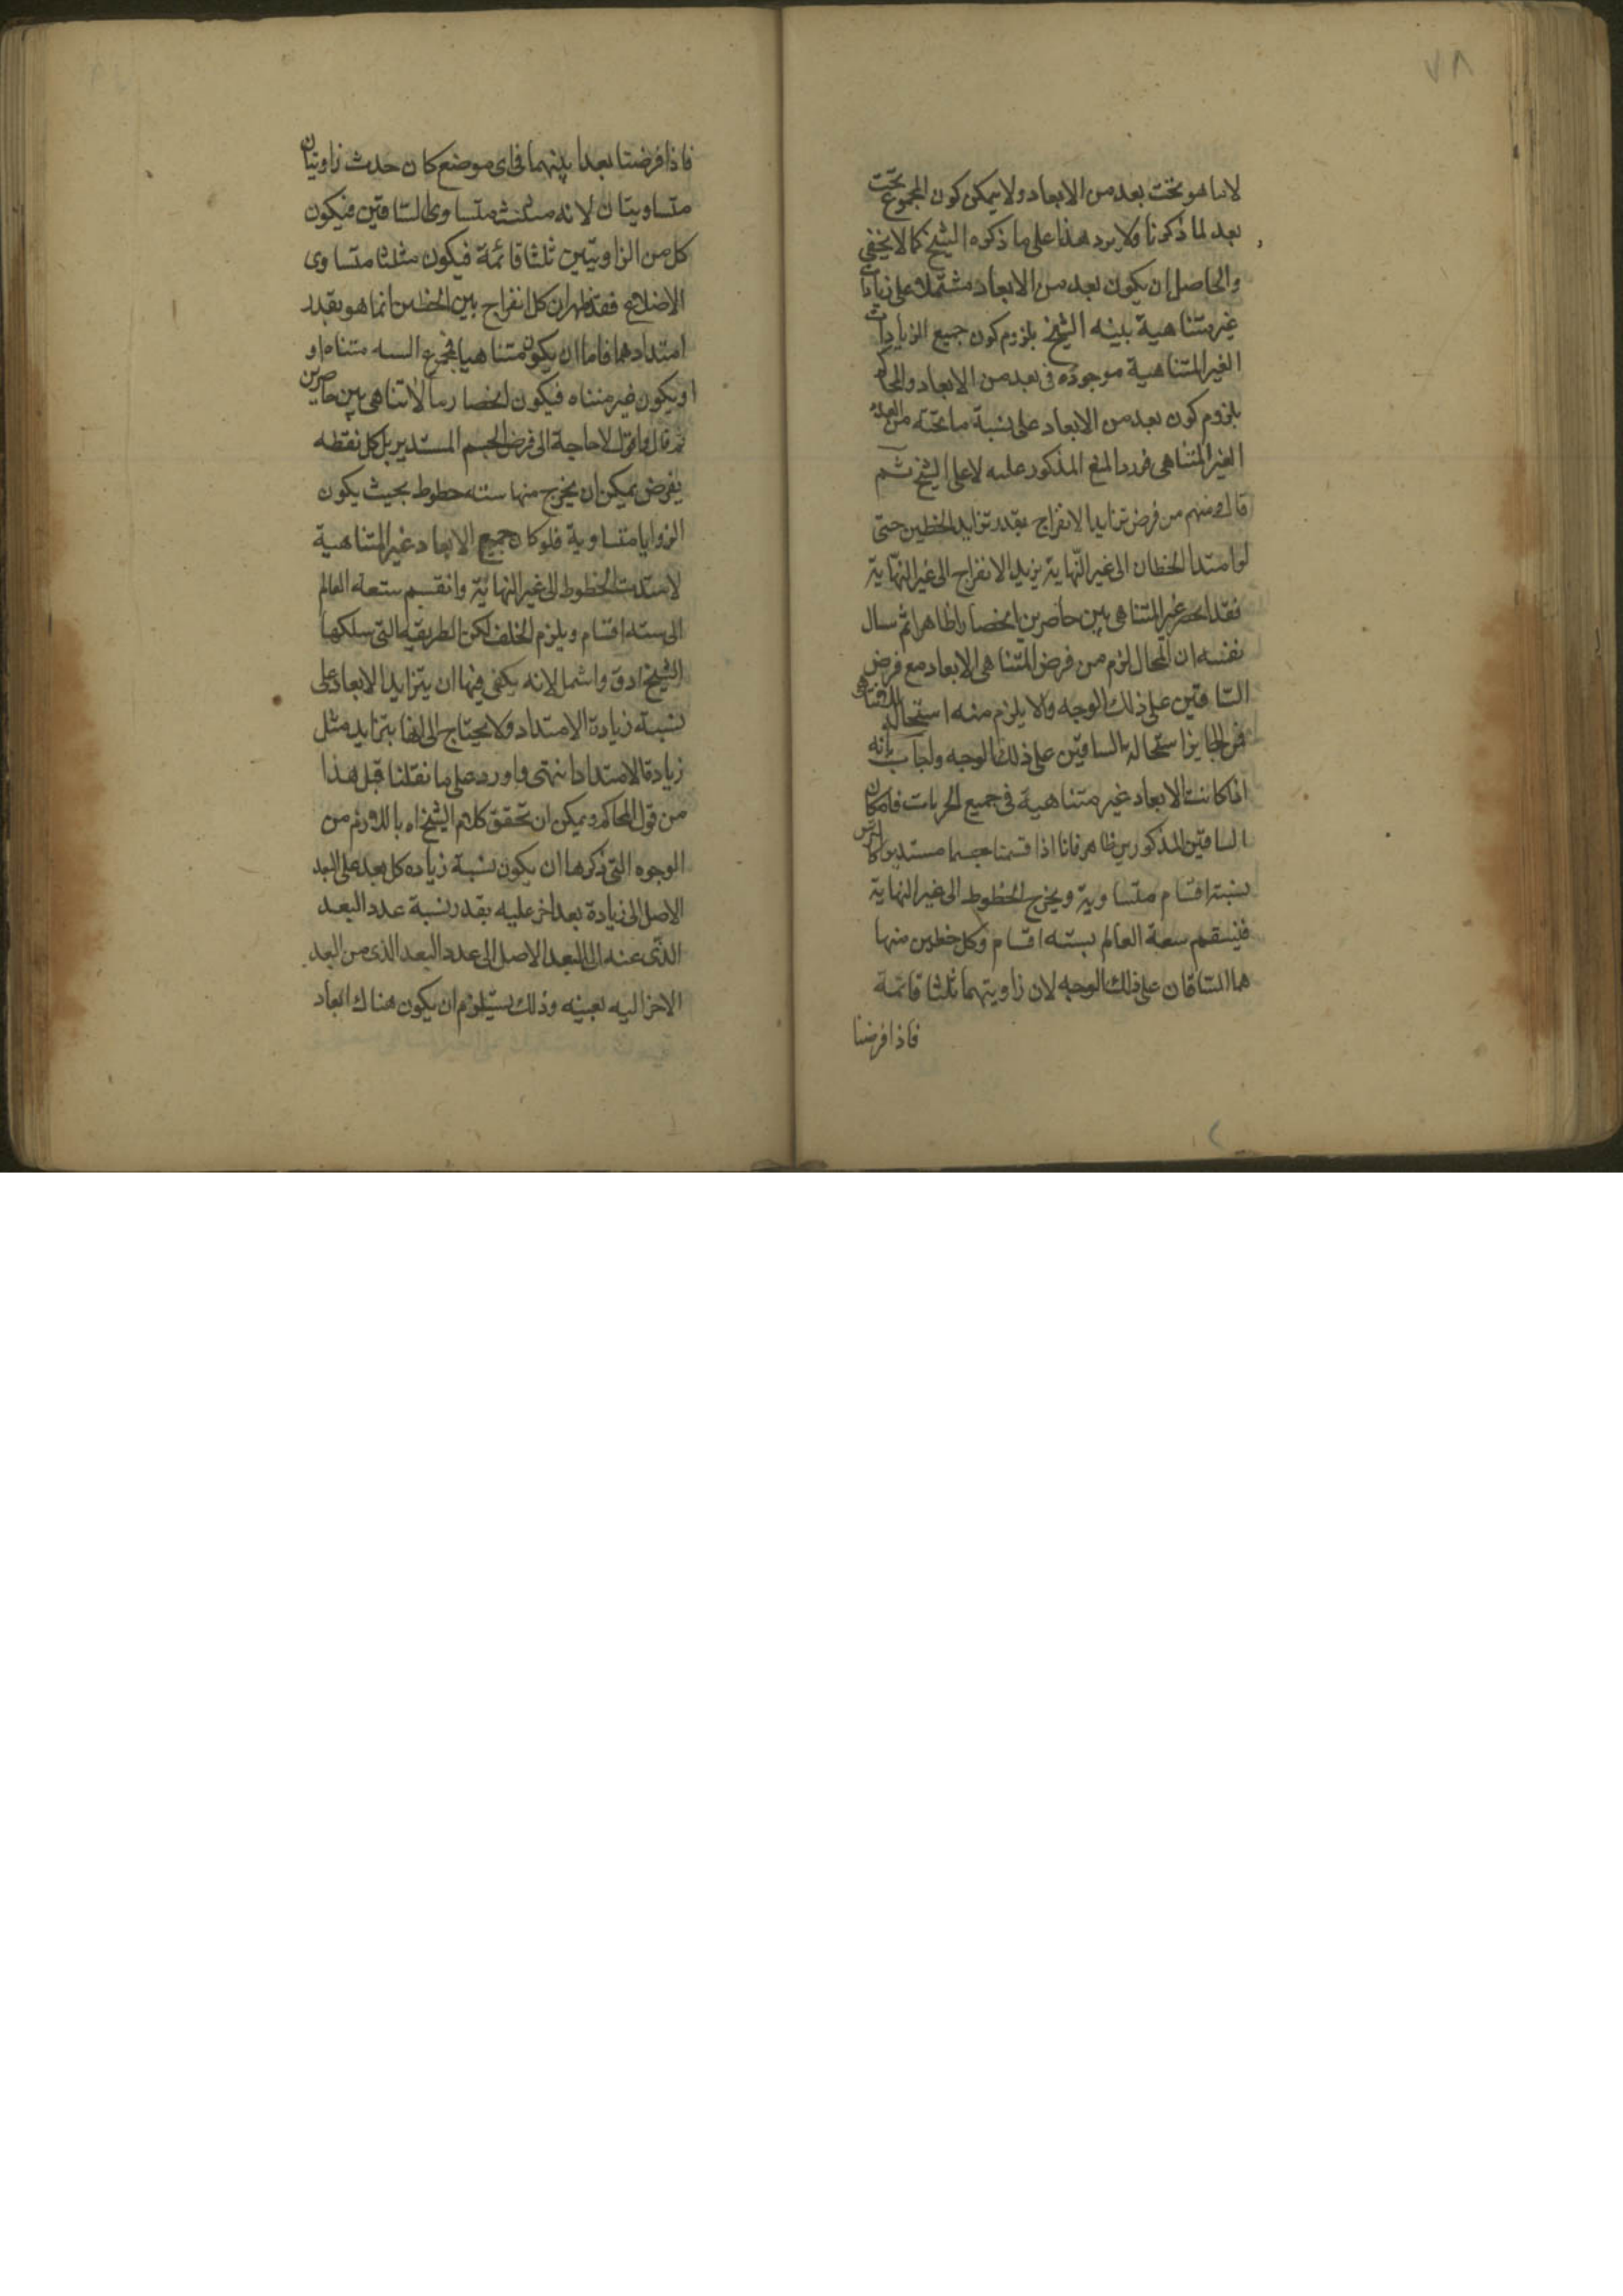 ٧٨
لانما هو تحت بعد من الابعاد ولا يمكن كون المجموع تحت
بعد لما ذكرنا ولا يرد هذا على ما ذكره الشيخ كما لا يخفى
والحاصل ان يكون بعد من الابعاد مشتملا على زيادات
غير متناهية بينه الشيخ بلزوم كون جميع الزيادات
الغير المتناهية موجوده فى بعد من الابعاد والمحاكم
بلزوم كون بعد من الابعاد على نسبة ما تحته من العدد
الغير المتناهى فورد المنع المذكور عليه لا على الشيخ ثم
قال ومنهم من فرض تزايد الانفراج بقدر تزايد الخطين حتى
لو امتدا الخطان الى غير النهاية يزيد الانفراج الى غير النهاية
فقد انحصر غير المتناهى بين حاصرين انحصارا ظاهرا ثم سال
نفسه ان المحال لزم من فرض المتناهى الابعاد مع فرض
الساقين على ذلك الوجه ولا يلزم منه استحالة اللاتناهى
فمن الجايز استحالة الساقين على ذلك الوجه واجاب بانه
اذا كانت الابعاد غير متناهية فى جميع الجهات فامكان
الساقين المذكورين ظاهر فانا اذا قسمنا جسما مستديرا كالترس
بستة اقسام متساوية ويخرج الخطوط الى غير النهاية
فينقسم سعة العالم بسته اقسام وكل خطين منها
هما الساقان على ذلك الوجه لان زاويتهما ثلثا قائمة
فاذا فرضنا
فاذا فرضنا بعدا بينهما فى اى موضع كان حدث زاويتان
متساويتان لانه مثلث متساوى الساقين فيكون
كل من الزاويتين ثلثا قائمة فيكون مثلثا متساوى
الاضلاع فقد ظهر ان كل انفراج بين الخطين انما هو بقدر
امتدادهما فاما ان يكون متناهيا فمجموع السته متناه او
او يكون غير متناه فيكون انحصار ما لا تناهى بين حاصرين
ثم قال واقول لا حاجة الى فرض الجسم المستدير بل كل نقطه
يفرض يمكن ان يخرج منها سته خطوط بحيث يكون
الزوايا متساوية فلو كان جميع الابعاد غير المتناهية
لامتدت الخطوط الى غير النهاية وانقسم سعة العالم
الى ستة اقسام ويلزم الخلف لكن الطريقه التى سلكها
الشيخ ادق واشمل لانه يكفى فيها ان يتزايد الابعاد على
نسبة زيادة الامتداد ولا يحتاج الى انها بتزايد مثل
زيادة الامتداد انتهى واورد على ما نقلنا قبل هذا
من قول المحاكم ويمكن ان تحقق كلام الشيخ اه باللازم من
الوجوه التى ذكرها ان يكون نسبة زياده كل بعد على البعد
الاصل الى زيادة بعد اخر عليه بقدر نسبة عدد البعد
الذى عنه الى البعد الاصل الى عدد البعد الذى من البعد
الاخر اليه بعينه وذلك يستلزم ان يكون هناك ابعاد